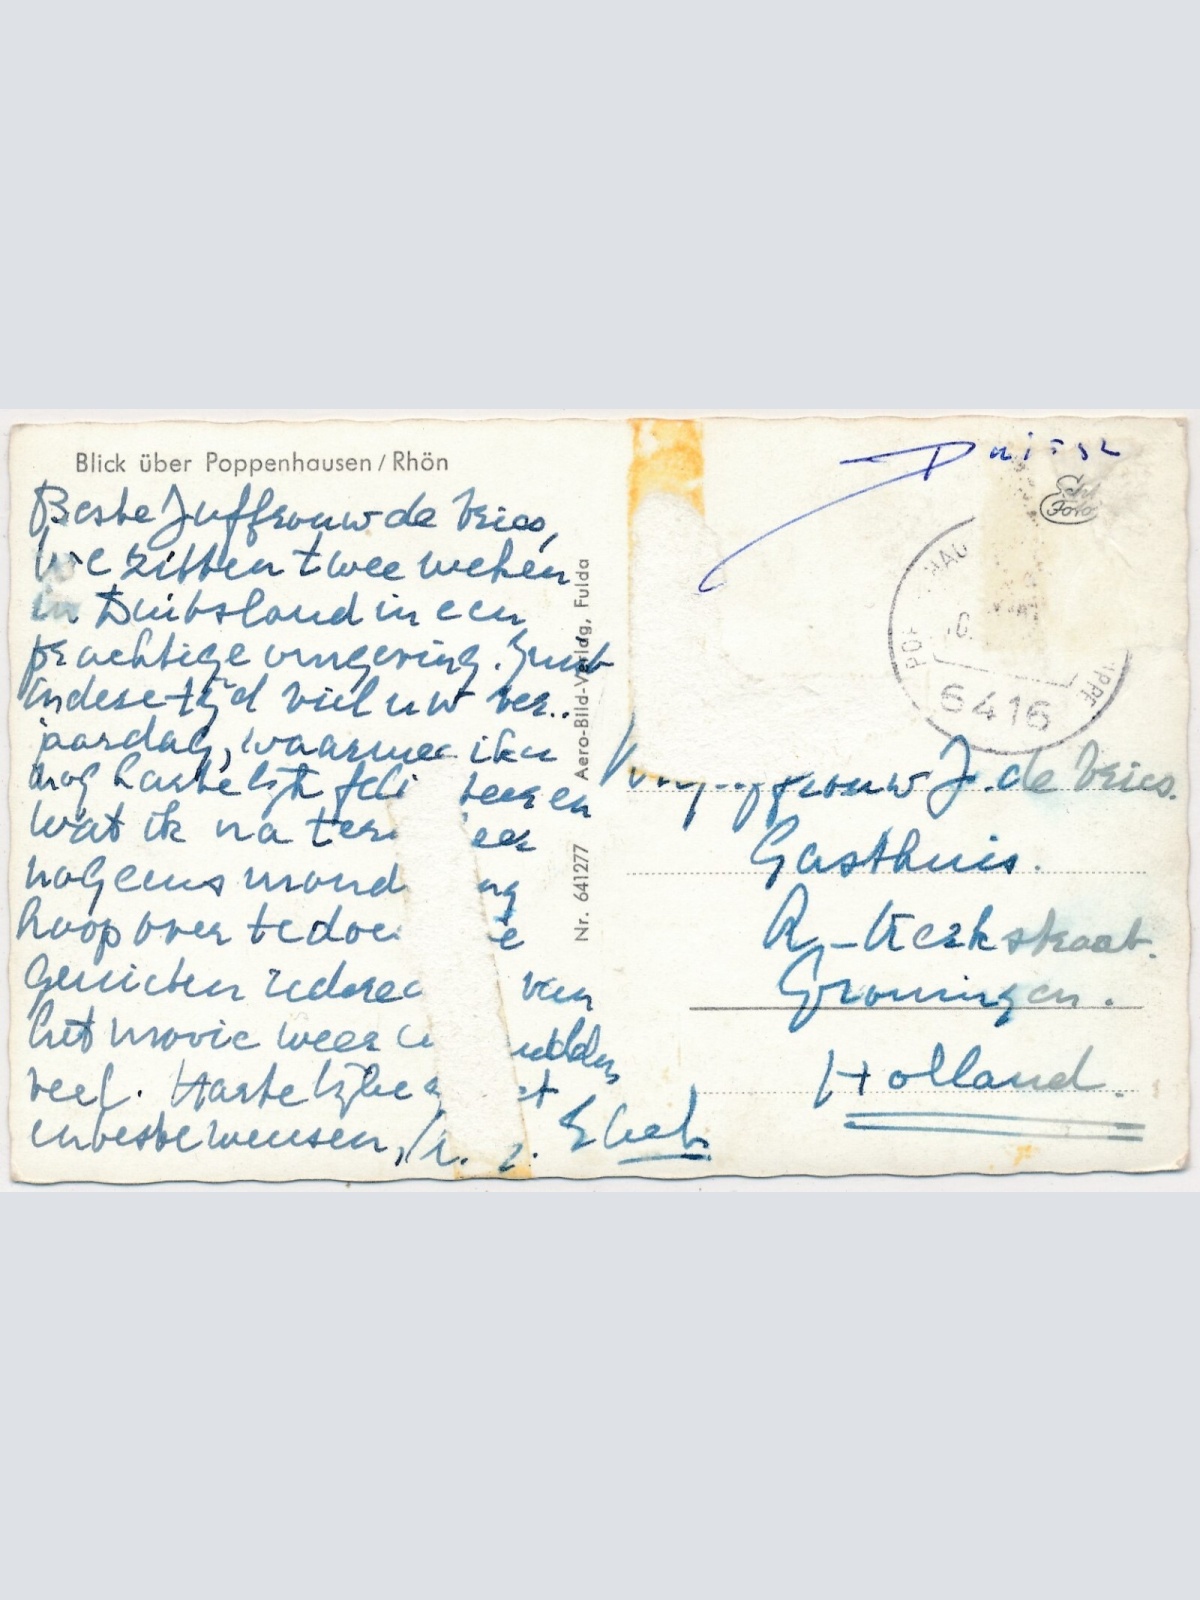 Blick über Poppenhausen/Rhön
Beste Juffrouw de Vries,
We zitten twee weken
in Duitsland in een
prachtige omgeving. Juist
in dese tijd viel uw ver..
jaardag, waarmee ik u
nog hartelijk feli teeren
wat ik na ter eer
nog eens mond ng
hoop over te doe e
genieten iedere van
het mooie weer
veel. Hartelijke et
en beste wensen,
Nr. 641277 Aero-Bild-Verlag, Fulda
Echt Foto
6416
ffrouw J. de Vries.
Gasthuis.
R-Kerkstraat.
Groningen.
Holland.